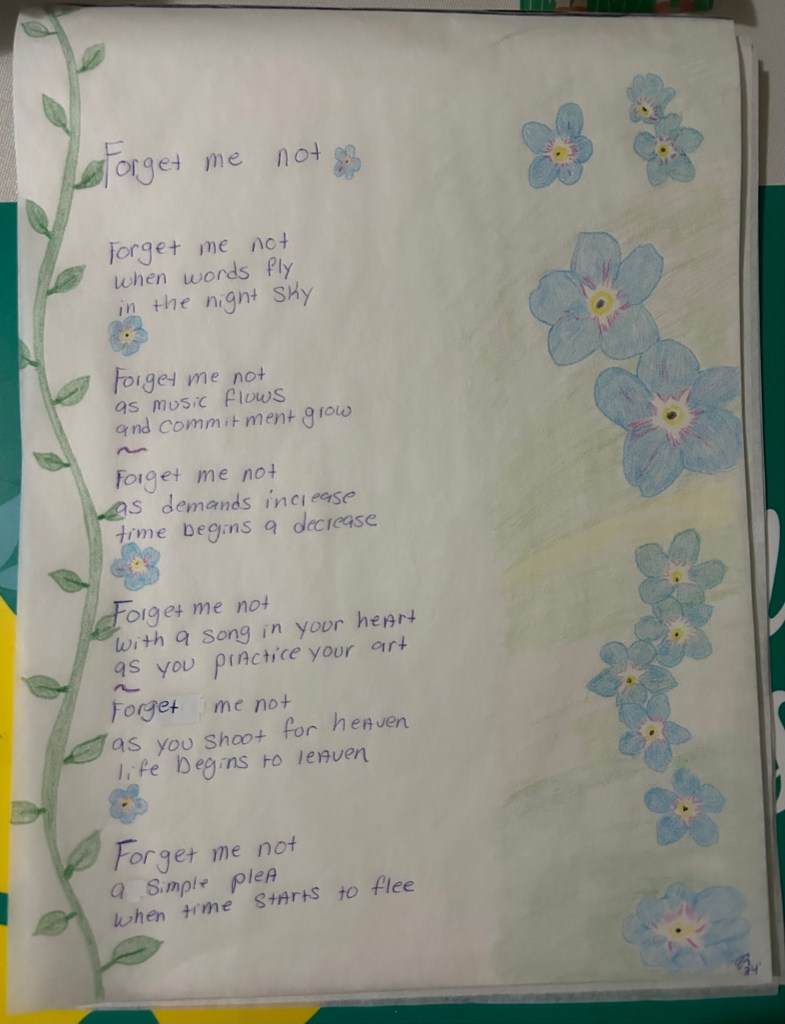 Forget me not
Forget me not
when words fly
in the night sky
Forget me not
as music flows
and commitment grow
Forget me not
as demands increase
time begins a decrease
Forget me not
with a song in your heArt
as you prActice your art
Forget me not
as you shoot for heAven
life begins to leAven
Forget me not
a simple pleA
when time stArts to flee
24